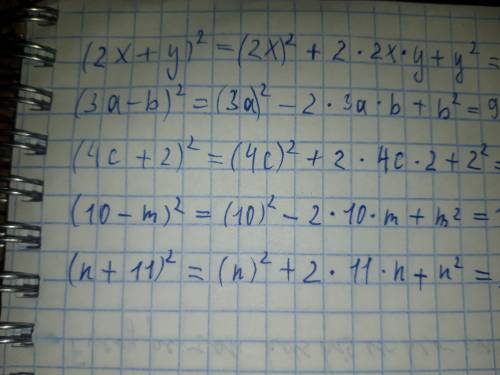 (2x + y)² = (2x)² + 2 · 2x · y + y² =
(3a - b)² = (3a)² - 2 · 3a · b + b² = 9
(4c + 2)² = (4c)² + 2 · 4c · 2 + 2² =
(10 - m)² = (10)² - 2 · 10 · m + m² =
(n + 11)² = (n)² + 2 · 11 · n + n² =